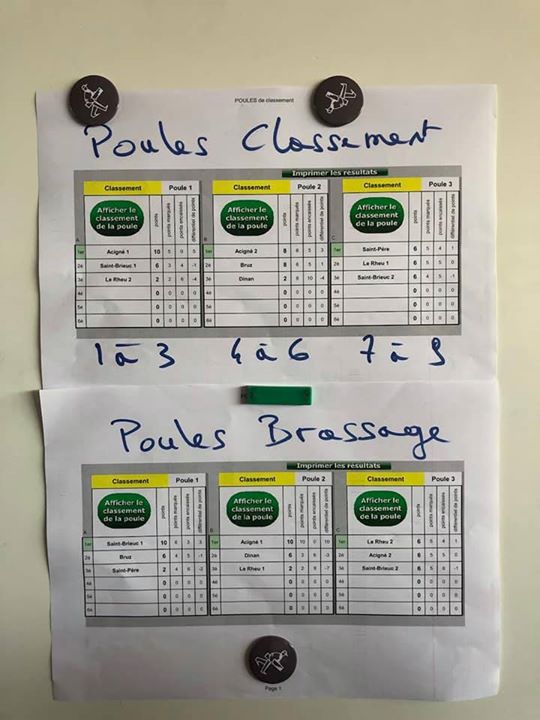 POULES de classement
Poules Classement
Imprimer les résultats
Classement Poule 1 Classement Poule 2 Classement Poule 3
Afficher le classement de la poule points points marqués points encaissés différentiel de points Afficher le classement de la poule points points marqués points encaissés différentiel de points Afficher le classement de la poule points points marqués points encaissés différentiel de points
A B C
1er Acigné 1 10 5 0 5 1er Acigné 2 8 8 5 3 1er Saint-Père 6 5 4 1
2è Saint-Brieuc 1 6 3 4 -1 2è Bruz 8 6 5 1 2è Le Rheu 1 6 5 5 0
3è Le Rheu 2 2 2 6 -4 3è Dinan 2 6 10 -4 3è Saint-Brieuc 2 6 4 5 -1
4è 0 0 0 0 4è 0 0 0 0 4è 0 0 0 0
5è 0 0 0 0 5è 0 0 0 0 5è 0 0 0 0
6è 0 0 0 0 6è 0 0 0 0 6è 0 0 0 0
1 à 3 4 à 6 7 à 9
Poules Brassage
Imprimer les résultats
Classement Poule 1 Classement Poule 2 Classement Poule 3
Afficher le classement de la poule points points marqués points encaissés différentiel de points Afficher le classement de la poule points points marqués points encaissés différentiel de points Afficher le classement de la poule points points marqués points encaissés différentiel de points
A B C
1er Saint-Brieuc 1 10 6 3 3 1er Acigné 1 10 10 0 10 1er Le Rheu 2 6 6 5 1
2è Bruz 6 4 5 -1 2è Dinan 6 3 6 -3 2è Acigné 2 6 5 5 0
3è Saint-Père 2 4 6 -2 3è Le Rheu 1 2 2 9 -7 3è Saint-Brieuc 2 6 5 6 -1
4è 0 0 0 0 4è 0 0 0 0 4è 0 0 0 0
5è 0 0 0 0 5è 0 0 0 0 5è 0 0 0 0
6è 0 0 0 0 6è 0 0 0 0 6è 0 0 0 0
Page 1